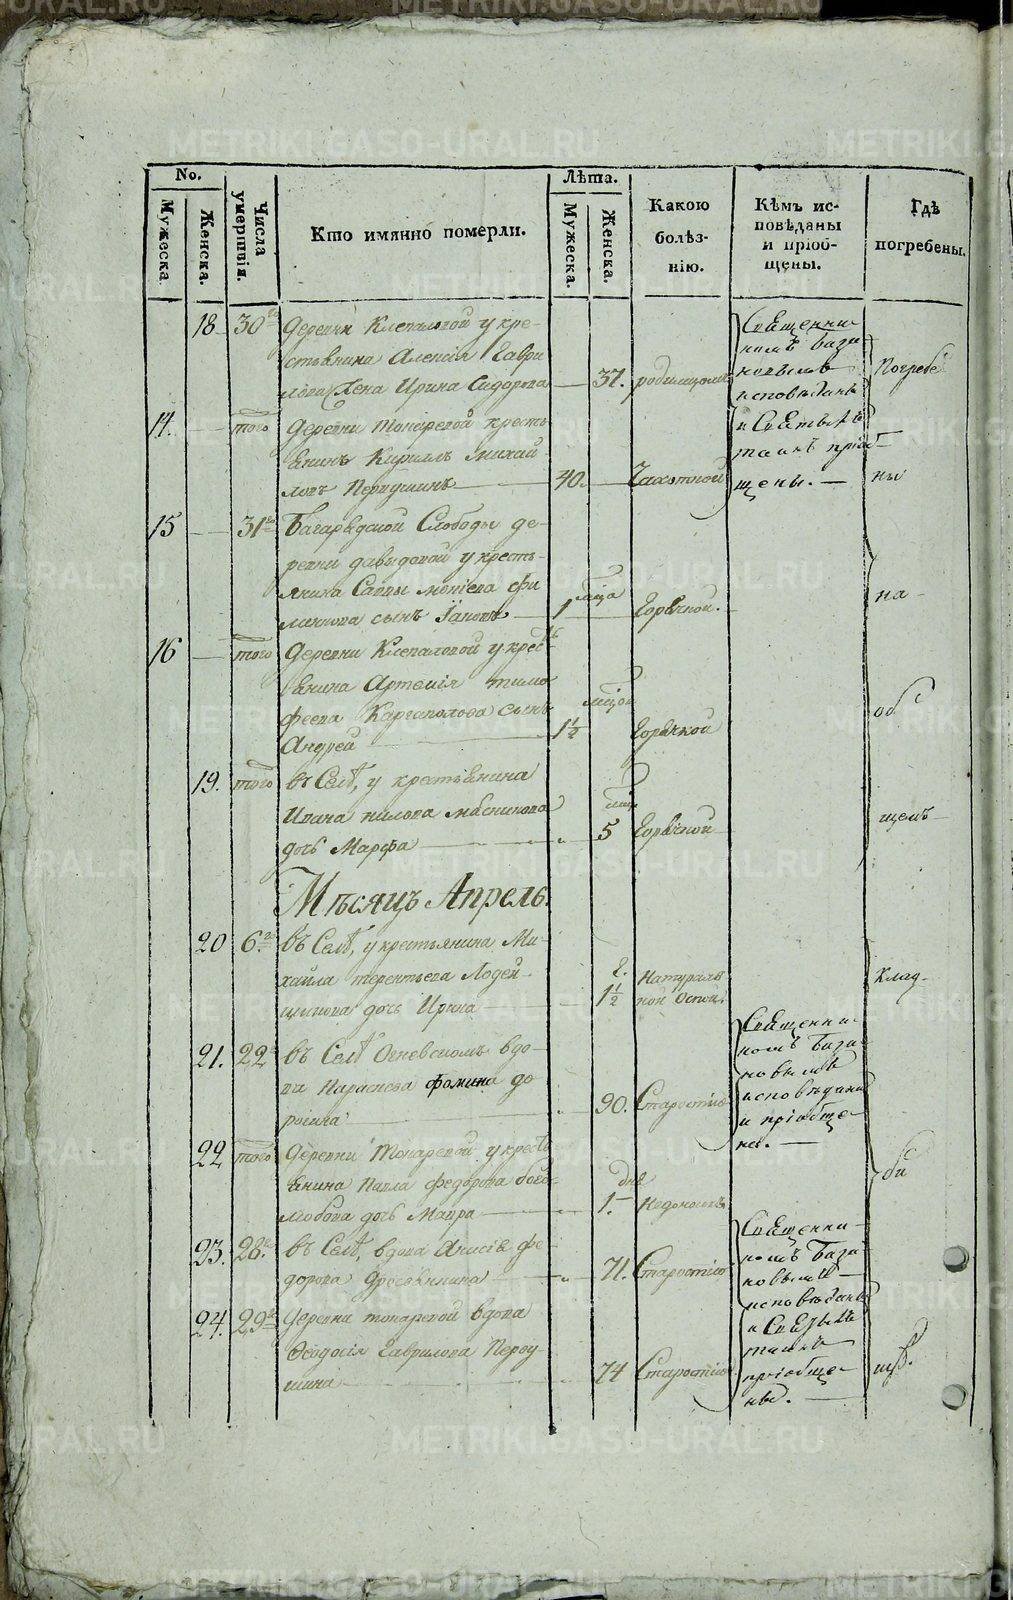 METRIKI.GASO-URAL.RU
No.
Мужеска.
Женска.
Числа умертвія.
Кто имянно померли.
Лѣта.
Мужеска.
Женска.
Какою болѣз-
нію.
Кѣмъ ис-
повѣданы
и пріоб-
щены.
Гдѣ
погребены.
18 30го Деревни Клепаловой у кре-
стьянина Алексія Гаври
лова жена Ирина Сидорова 37.
Священни-
комъ База
новымъ
исповѣданы
и Святыхъ
таинъ пріоб
щены.
Погребе
14. того Деревни Токаревой кресть
янинъ Кириллъ Михай
ловъ Первушинъ 40. Чахоткой
ны
15 31го Багарядской Слободы де-
ревни Давыдовой у кресть-
янина Саввы
сынъ Іаковъ 1 Горячкой.
на
16 того Деревни Клепаловой у крест
янина Артемія Тимо
феева Каргаполова сынъ
Андрей 1½ Горячкой
об
19. того въ Селѣ, у крестьянина
Ивана Нилова Мясникова
дочь Марфа 5 Горячкой
щемъ
Мѣсяцъ Апрель.
20 6го въ Селѣ, у крестьянина Ми-
хайла Терентьева Лодей
щикова дочь Ирина 1½ Натураль
ной Оспой.
Клад-
21. 22 въ Селѣ Огневскомъ вдо-
ва Параскева Фомина До
рогина 90. Старостію
Священни-
комъ База
новымъ
исповѣдана
и пріобще-
на.
22 того Деревни Токаревой у крест
янина Павла Федорова Бого
любова дочь Мавра 1.
би
23. 28го въ Селѣ, вдова Анисія Фе-
дорова 71. Старостію
Священни-
комъ База
новымъ
исповѣданы
и Святыхъ
таинъ
пріобще-
ны.
24. 29го Деревни Токаревой вдова
Феодосія Гаврилова Перву
шина 74 Старостію
щѣ.